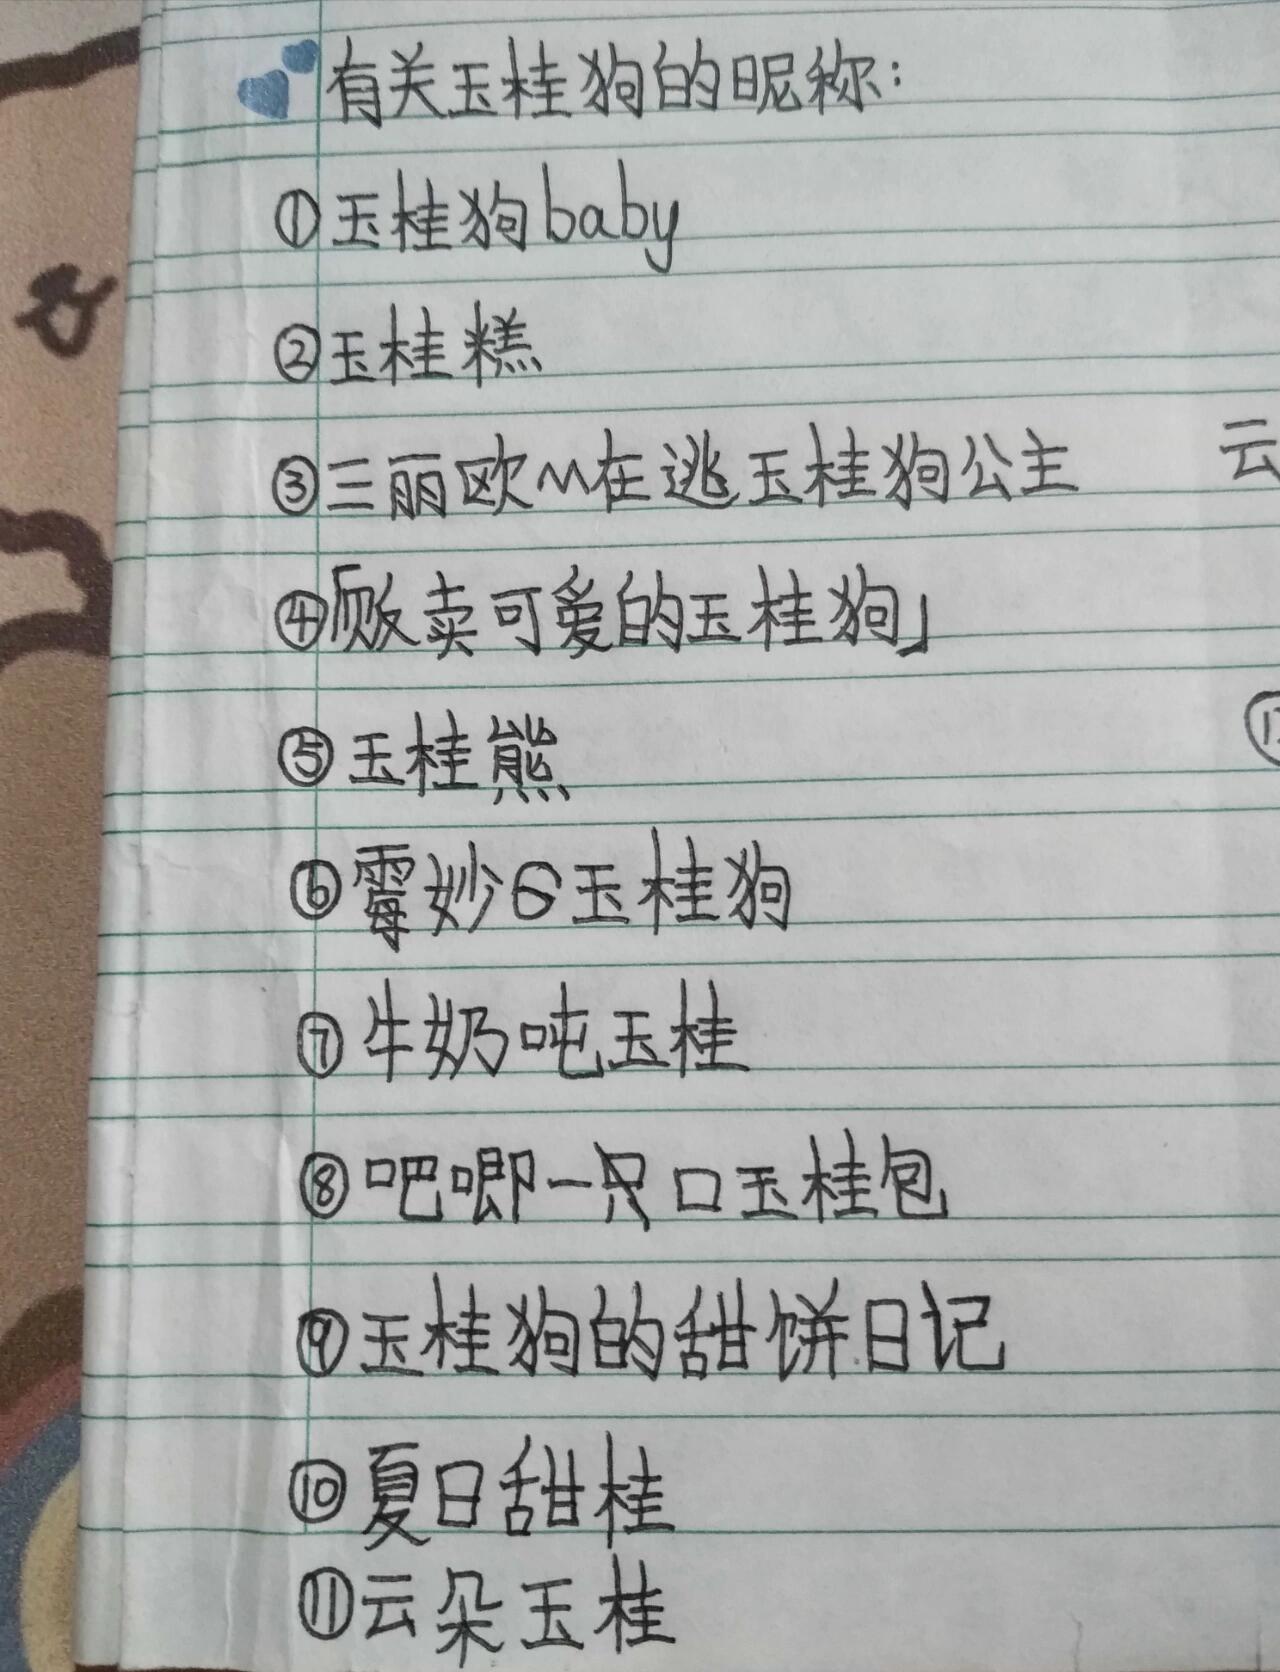 有关玉桂狗的昵称：
①玉桂狗baby
②玉桂糕
③三丽欧~在逃玉桂狗公主
云
④「贩卖可爱的玉桂狗」
⑤玉桂熊
⑥霉妙G玉桂狗
⑦牛奶吨玉桂
⑧吧唧一只口玉桂包
⑨玉桂狗的甜饼日记
⑩夏日甜桂
⑪云朵玉桂